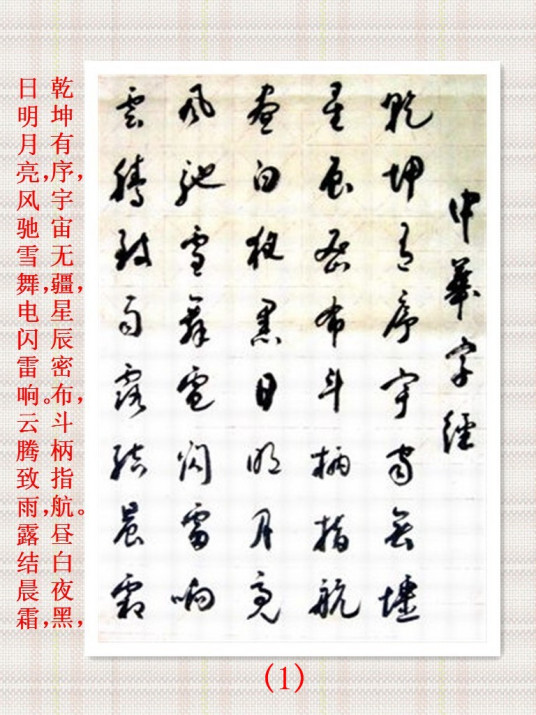 中華字經
乾坤有序宇宙無疆
星辰密布斗柄指航
晝白夜黑日明月亮
風馳雪舞電閃雷响
雲騰致雨露結晨霜
乾坤有序,宇宙无疆,星辰密布,斗柄指航。昼白夜黑,
日明月亮,风驰雪舞,电闪雷响。云腾致雨,露结晨霜,
(1)